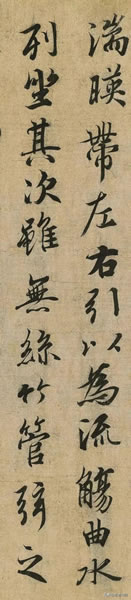 湍暎帶左右引以為流觴曲水
列坐其次雖無絲竹管弦之